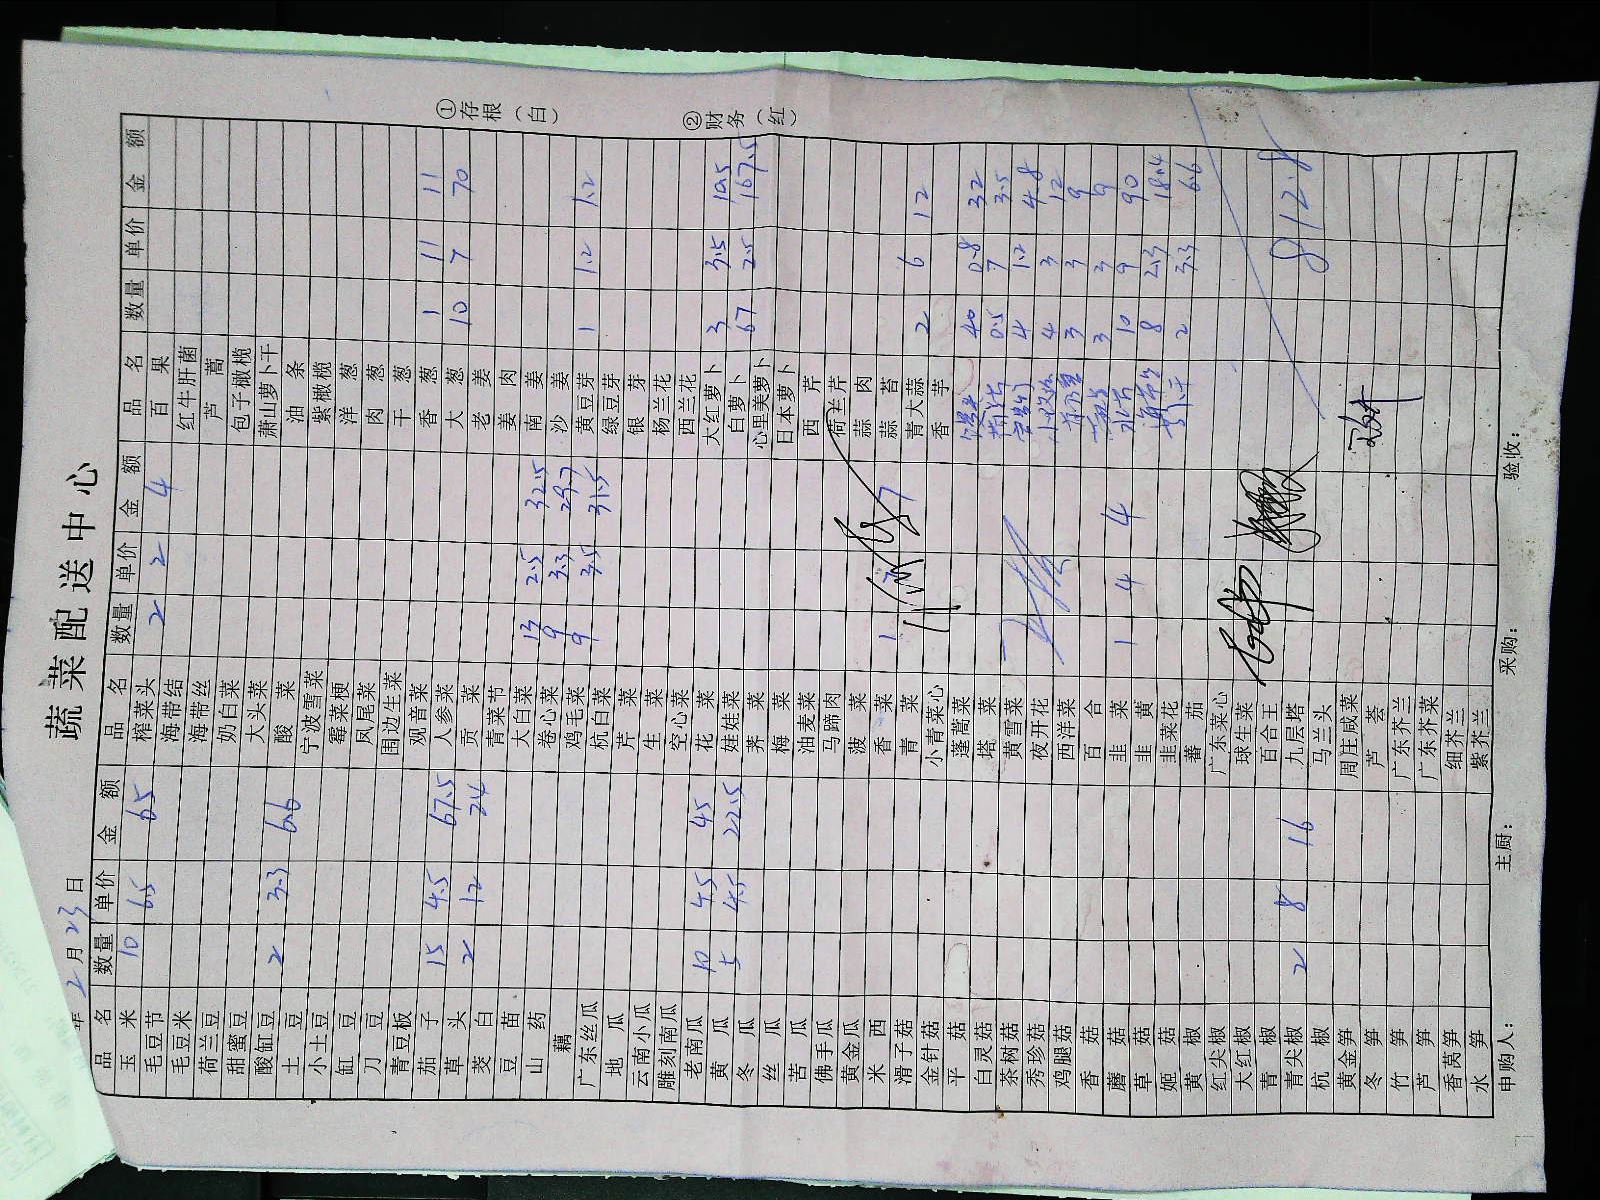 蔬菜配送中心
年 2月23日
品名 数量 单价 金额 品名 数量 单价 金额 品名 数量 单价 金额
玉米 10 6.5 65 榨菜头 2 2 4 百果
毛豆节 海带结 红牛肝菌
毛豆米 海带丝 芦蒿
荷兰豆 奶白菜 包子橄榄
甜蜜豆 大头菜 萧山萝卜干
酸缸豆 酸菜 油条
土豆 2 3.3 6.6 宁波雪菜 紫橄榄
小土豆 霉菜梗 洋葱
缸豆 凤尾菜 肉葱
刀豆 围边生菜 干葱
青豆板 观音菜 香葱 1 11 11
茄子 15 4.5 67.5 人参菜 大葱 10 7 70
草头 2 12 24 贡菜 老姜
茭白 青菜节 姜肉
豆苗 大白菜 13 2.5 32.5 南姜
山药 卷心菜 9 3.3 29.7 沙姜
藕 鸡毛菜 9 3.5 31.5 黄豆芽 1 1.2 1.2
广东丝瓜 杭白菜 绿豆芽
地瓜 芹菜 银芽
云南小瓜 生菜 杨兰花
雕刻南瓜 空心菜 西兰花
老南瓜 花菜 大红萝卜 3 3.5 10.5
黄瓜 10 4.5 45 娃娃菜 白萝卜 67 2.5 167.5
冬瓜 5 4.5 22.5 荠菜 心里美萝卜
丝瓜 梅菜 日本萝卜
苦瓜 油麦菜 西芹
佛手瓜 马蹄肉 荷兰芹
黄金瓜 菠菜 蒜肉
米西 香菜 1 7 7 蒜苔
滑子菇 青菜 青大蒜 2 6 12
金针菇 小青菜心 香芋
平菇 蓬蒿菜 40 0.8 32
白灵菇 塔菜 0.5 7 3.5
茶树菇 黄雪菜 4 1.2 4.8
秀珍菇 夜开花 4 3 12
鸡腿菇 西洋菜 3 3 9
香菇 百合 3 3 9
蘑菇 韭菜 1 4 4 10 9 90
草菇 韭黄 8 2.3 18.4
姬菇 韭菜花 2 3.3 6.6
黄椒 蕃茄
红尖椒 广东菜心
大红椒 球生菜
青椒 百合王
青尖椒 2 8 16 九层塔 812.8
杭椒 马兰头
黄金笋 周庄咸菜
冬笋 芦荟
竹笋 广东芥兰
芦笋 广东芥菜
香莴笋 细芥兰
水笋 紫芥兰
申购人： 主厨： 采购： 验收：
①存根（白）
②财务（红）